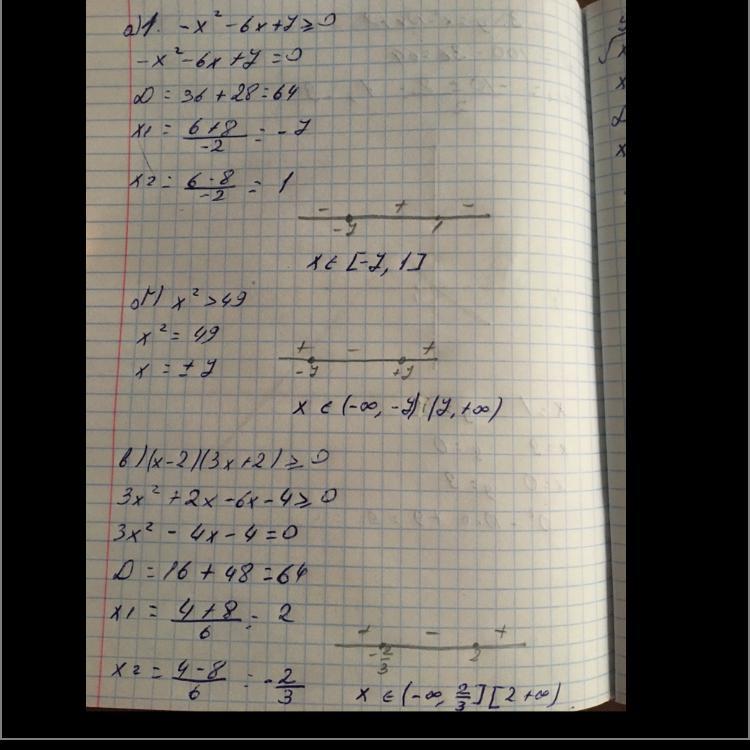 a) 1. -x² - 6x + 7 ≥ 0
-x² - 6x + 7 = 0
D = 36 + 28 = 64
x1 = (6+8)/-2 = -7
x2 = (6-8)/-2 = 1
- + -
-7 1
x ∈ [-7, 1]
б) x² > 49
x² = 49
x = ± 7
+ - +
-7 +7
x ∈ (-∞, -7) (7, +∞)
в) (x-2)(3x+2) ≥ 0
3x² + 2x - 6x - 4 ≥ 0
3x² - 4x - 4 = 0
D = 16 + 48 = 64
x1 = (4+8)/6 = 2
x2 = (4-8)/6 = -2/3
+ - +
-2/3 2
x ∈ (-∞, 2/3] [2 +∞)